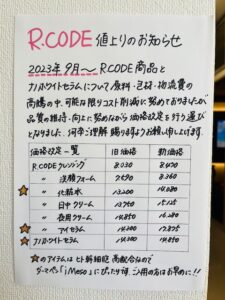 R.CODE 値上りのお知らせ
2023年9月〜 R.CODE商品と
ナノホワイトセラムについて原料・包材・物流費の
高騰の中、可能な限りコスト削減に努めておりましたが
品質の維持・向上に努めながら価格改定を行う運び
となりました。何卒ご理解賜りますようお願い申し上げます。
価格改定一覧 旧価格 新価格
R.CODE クレンジング 8,030 8,470
〃 洗顔フォーム 7,590 8,360
☆ 〃 化粧水 13,200 14,080
〃 日中クリーム 13,750 15,125
〃 夜用クリーム 14,850 16,280
☆ 〃 アイセラム 14,300 17,875
☆ ナノホワイトセラム 14,300 14,850
☆のアイテムは ヒト幹細胞 高配合なので
ダーマペン「iMeso」にぴったりです ご利用の方はお早めに!!